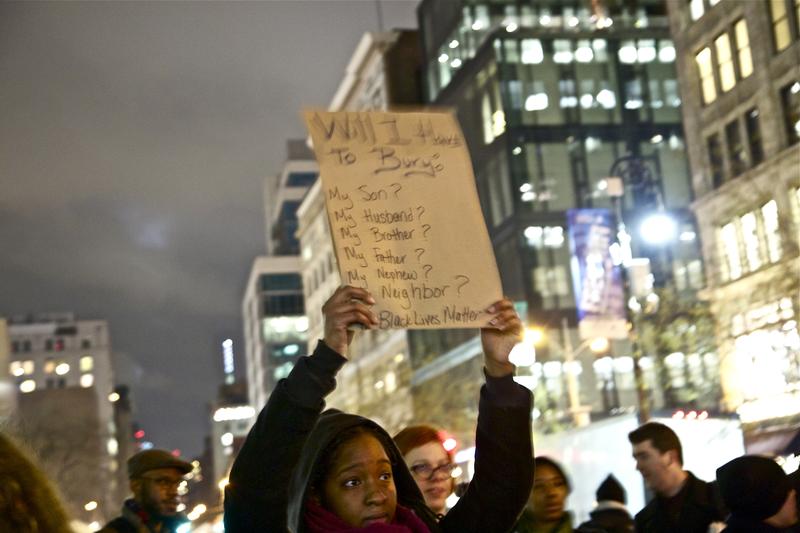 Will I Have
To Bury:
My Son?
My Husband?
My Brother?
My Father?
My Nephew?
My Neighbor?
Black Lives Matter